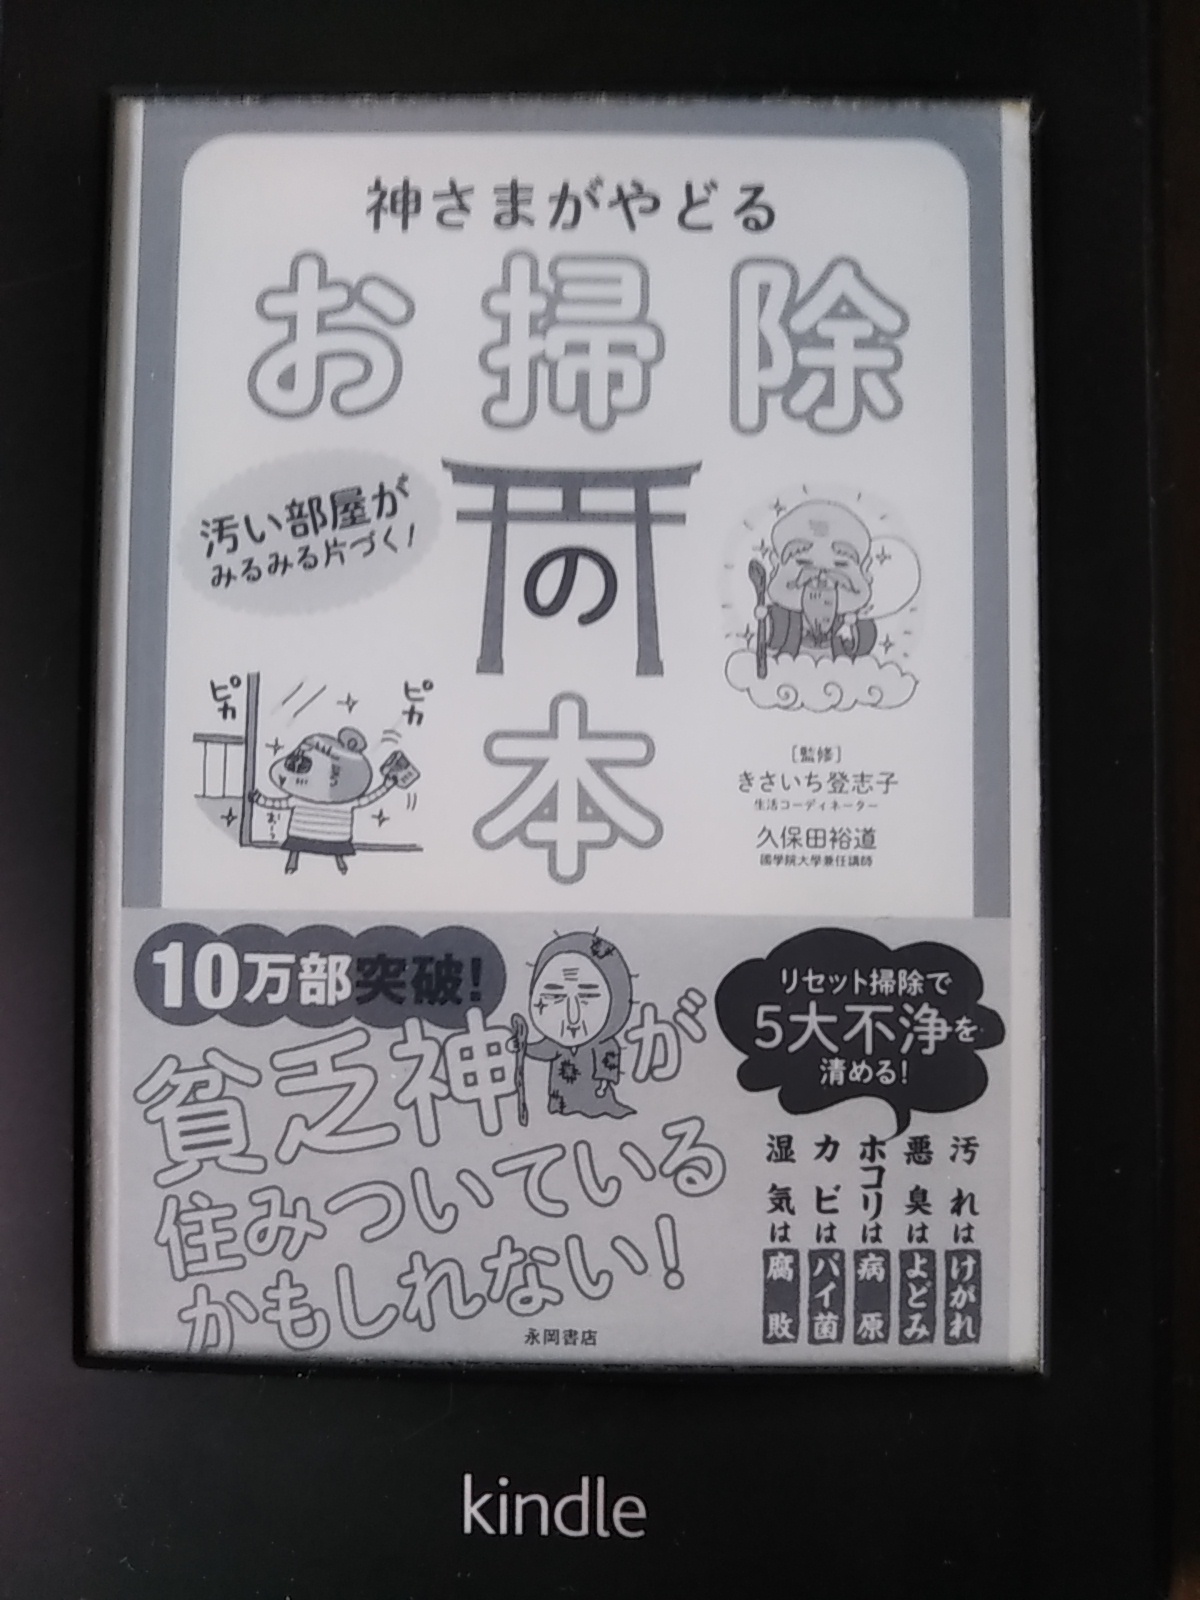 神さまがやどる
お掃除
の
本
汚い部屋が
みるみる片づく!
ピカ
ピカ
お〜っ
[監修]
きさいち登志子
生活コーディネーター
久保田裕道
國學院大學兼任講師
10万部突破!
貧乏神が
住みついている
かもしれない!
リセット掃除で
5大不浄を
清める!
汚れはけがれ
悪臭はよどみ
ホコリは病原
カビはバイ菌
湿気は腐敗
永岡書店
kindle